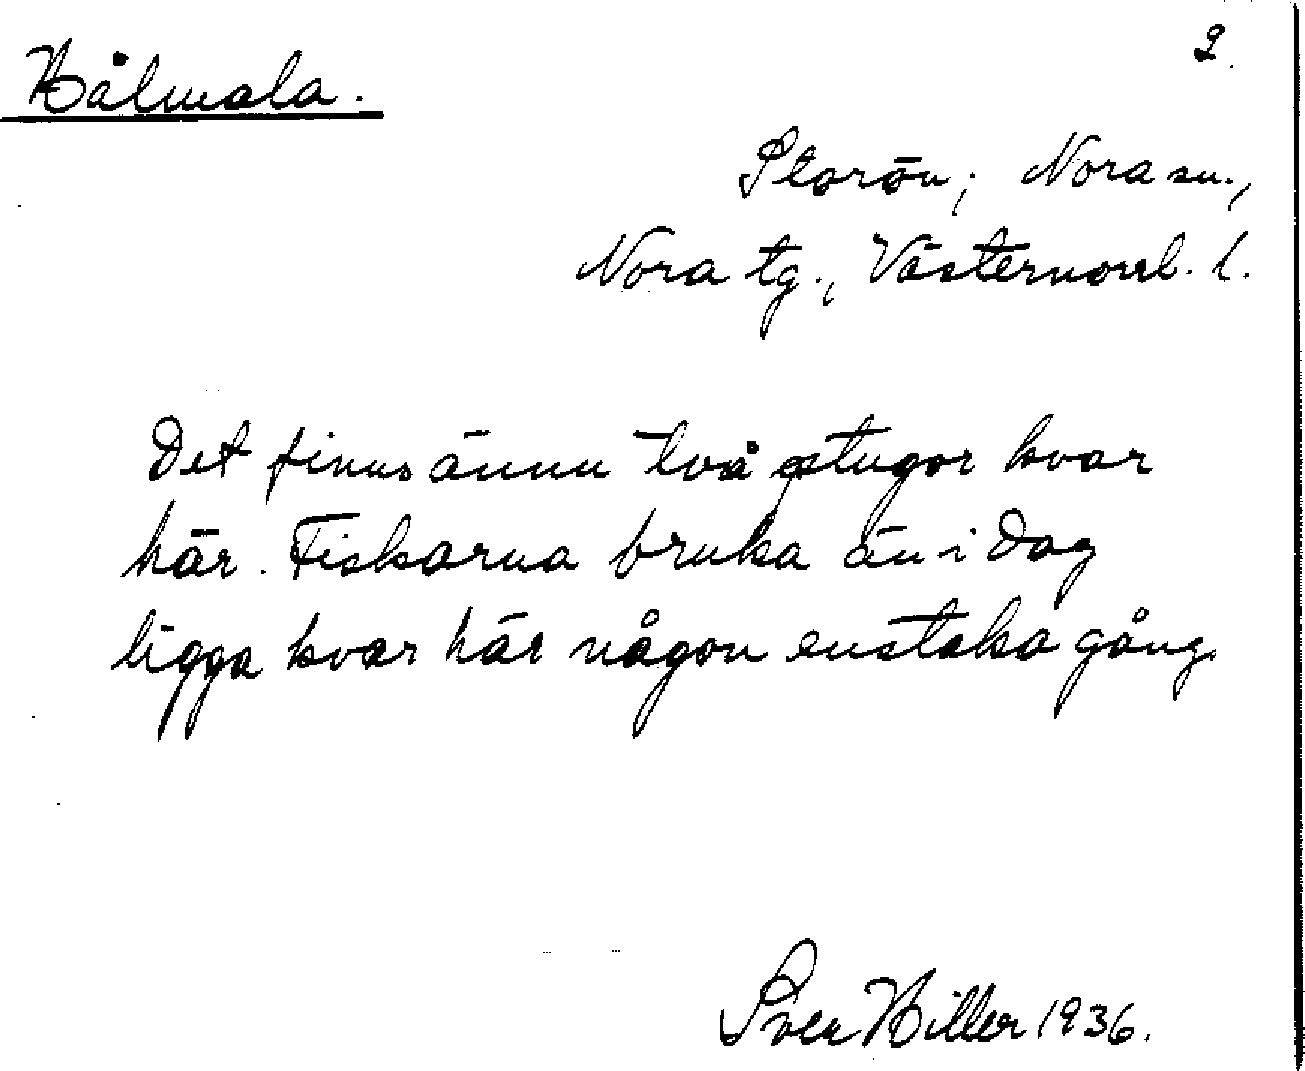 2.
Hålmala.
Storön; Nora sn.,
Nora tg., Västernorrl. l.
Det finns ännu två stugor kvar
här. Fiskarna bruka än i dag
ligga kvar här någon enstaka gång.
Sven Hiller 1936.